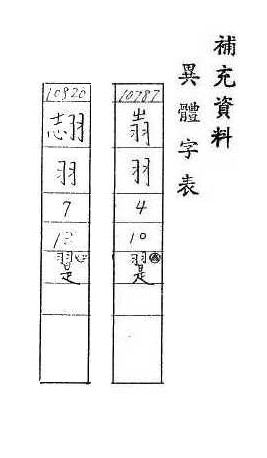 補充資料
異體字表
10787
羽
4
10
翨
10920
羽
7
13
翨